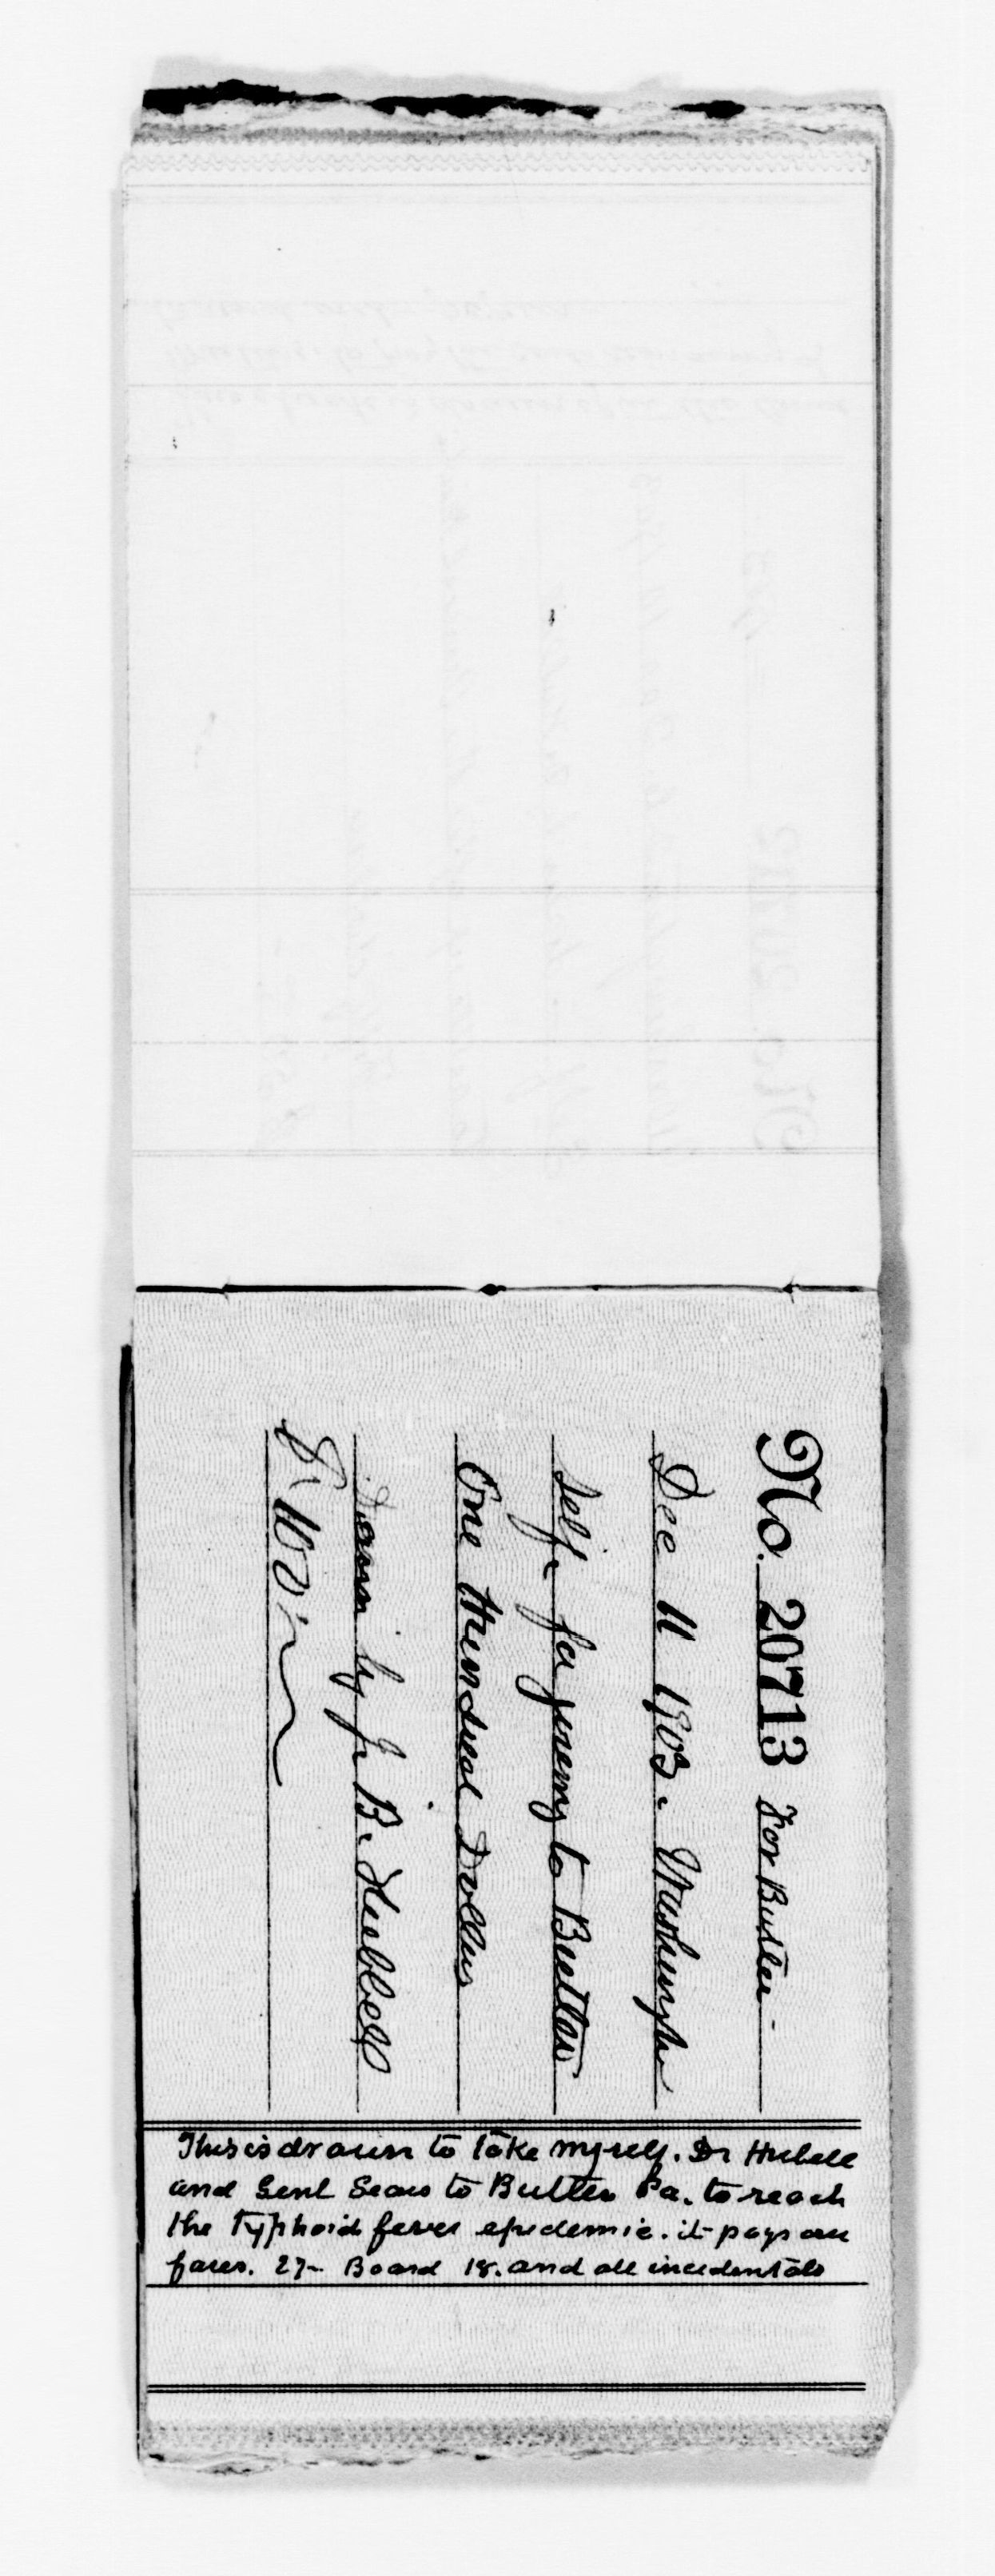 No. 20713 For Butler -
Dec 11 1903. Washington
Self for journey to Butler
One Hundred Dollars
Drawn by J. B. Hubbell
This is drawn to take myself. Dr Hubell
and Genl Sears to Butler Pa. to reach
the Typhoid fever epidemic. it pays our
fares. 27- Board 18. and all incidentals